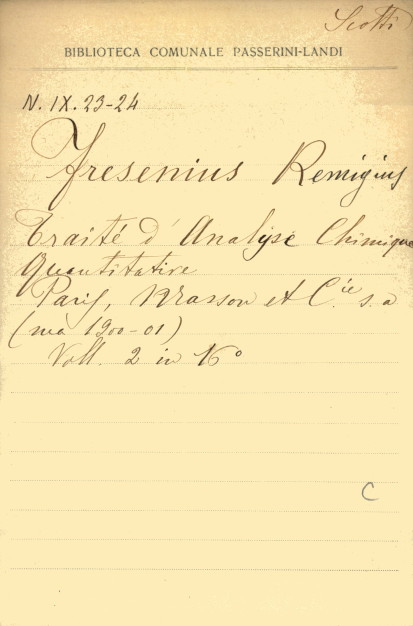 Scotti
BIBLIOTECA COMUNALE PASSERINI-LANDI
N. IX. 23-24
Fresenius Remigius
Traité d'Analyse Chimique
Quantitative
Paris, Masson et C.ie s. a
(ma 1900-01)
Voll. 2 in 16°
C